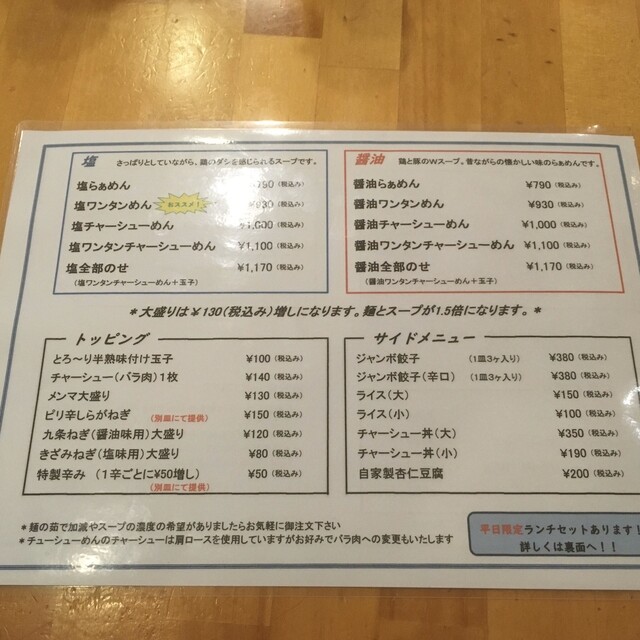 塩
さっぱりとしていながら、鶏のダシを感じられるスープです。
塩らぁめん ¥790（税込み）
塩ワンタンめん おススメ！ ¥930（税込み）
塩チャーシューめん ¥1,000（税込み）
塩ワンタンチャーシューめん ¥1,100（税込み）
塩全部のせ ¥1,170（税込み）
（塩ワンタンチャーシューめん＋玉子）
醤油
鶏と豚のＷスープ。昔ながらの懐かしい味のらぁめんです。
醤油らぁめん ¥790（税込み）
醤油ワンタンめん ¥930（税込み）
醤油チャーシューめん ¥1,000（税込み）
醤油ワンタンチャーシューめん ¥1,100（税込み）
醤油全部のせ ¥1,170（税込み）
（醤油ワンタンチャーシューめん＋玉子）
＊大盛りは￥130（税込み）増しになります。麺とスープが1.5倍になります。＊
トッピング
とろ～り半熟味付け玉子 ¥100（税込み）
チャーシュー（バラ肉）１枚 ¥140（税込み）
メンマ大盛り ¥130（税込み）
ピリ辛しらがねぎ （別皿にて提供） ¥150（税込み）
九条ねぎ（醤油味用）大盛り ¥120（税込み）
きざみねぎ（塩味用）大盛り ¥80（税込み）
特製辛み （１辛ごとに¥50増し） ¥50（税込み）
（別皿にて提供）
サイドメニュー
ジャンボ餃子 （1皿3ヶ入り） ¥380（税込み）
ジャンボ餃子（辛口） （1皿3ヶ入り） ¥380（税込み）
ライス（大） ¥150（税込み）
ライス（小） ¥100（税込み）
チャーシュー丼（大） ¥350（税込み）
チャーシュー丼（小） ¥190（税込み）
自家製杏仁豆腐 ¥200（税込み）
＊麺の茹で加減やスープの濃度の希望がありましたらお気軽に御注文下さい
＊チューシューめんのチャーシューは肩ロースを使用していますがお好みでバラ肉への変更もいたします
平日限定ランチセットあります！
詳しくは裏面へ！！